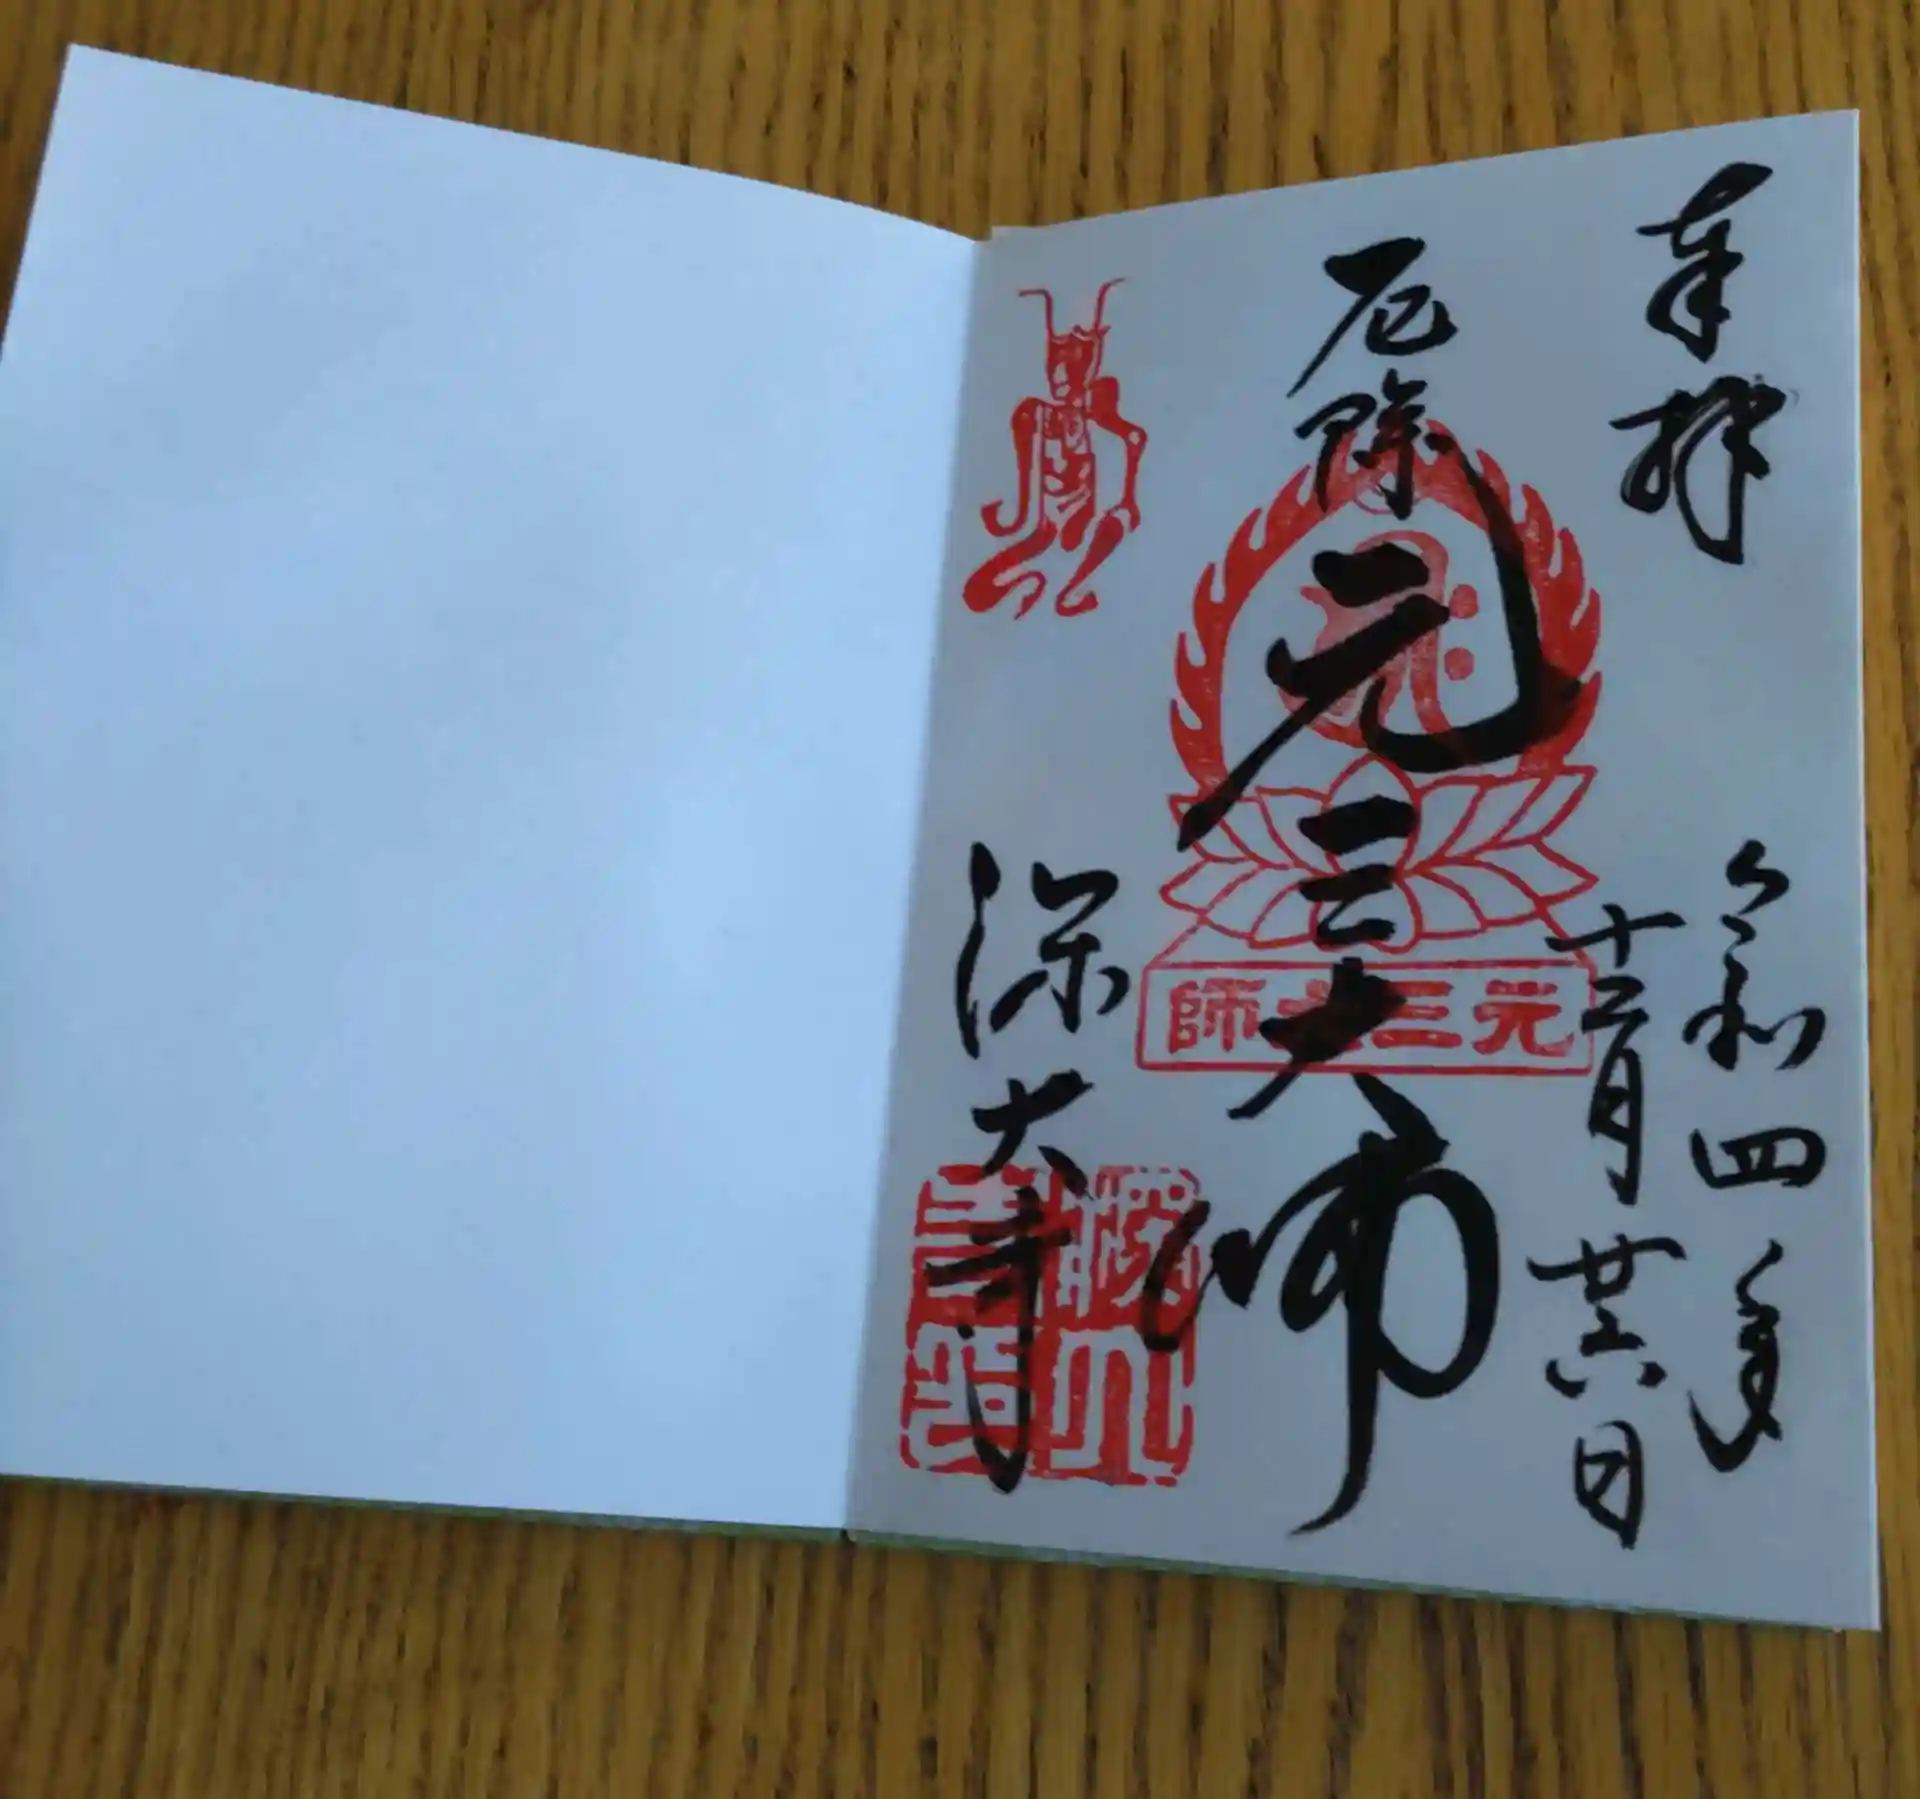 奉拝
令和四年
十二月廿六日
厄除
元三大師
師大三元
深大寺